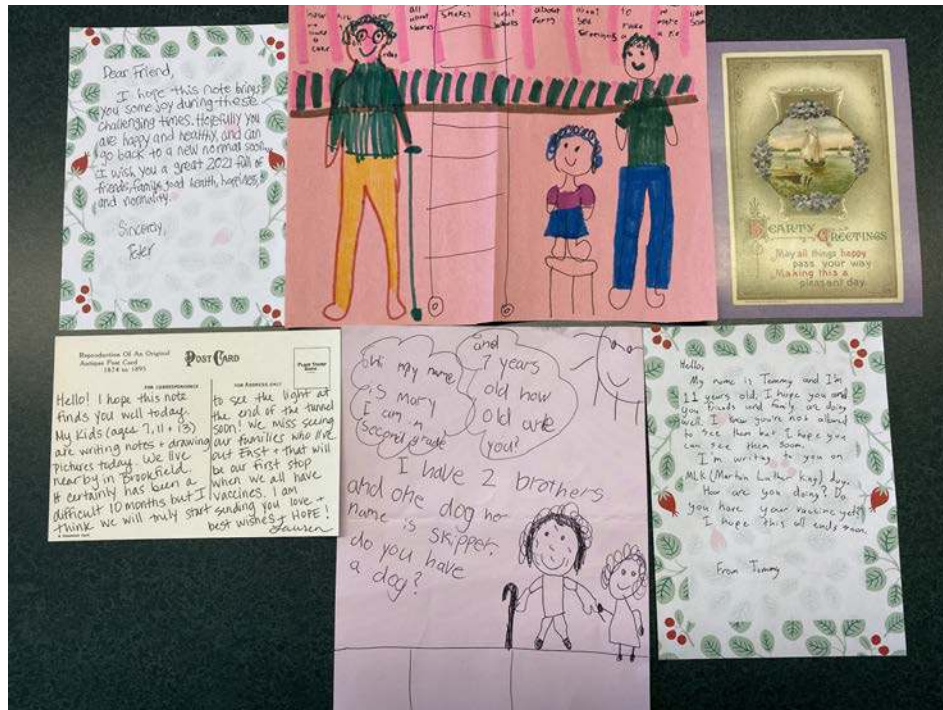 Dear Friend,
I hope this note brings
you some joy during these
challenging times. Hopefully you
are happy and healthy, and can
go back to a new normal soon.
I wish you a great 2021 full of
friends, family, good health, happiness,
and normality.
Sincerely,
Peter
all
about
Snakes
about
Ferry
to
make
a
HEARTY GREETINGS
May all things happy
pass your way
Making this a
pleasant day.
Reproduction Of An Original
Antique Post Card
1874 to 1895
POST CARD
FOR CORRESPONDENCE
FOR ADDRESS ONLY
Hello! I hope this note
finds you well today.
My kids (ages 7, 11 + 13)
are writing notes + drawing
pictures today. We live
nearby in Brookfield.
It certainly has been a
difficult 10 months but I
think we will truly start
to see the light at
the end of the tunnel
soon! We miss seeing
our families who live
out EAST + that will
be our first stop
when we all have
vaccines. I am
sending you love +
best wishes + HOPE!
Lauren
my name
is Mary
I am in
second grade
and
7 years
old how
old are
you?
I have 2 brothers
and one dog her
name is Skipper.
do you have
a dog?
Hello,
My name is Tommy and I'm
11 years old. I hope you and
you friends and family are doing
well. I know you're not allowed
to see them but I hope you
can see them soon.
I'm writing to you on
MLK (Martin Luther King) day.
How are you doing? Do
you have your vaccine yet?
I hope this all ends soon.
From Tommy